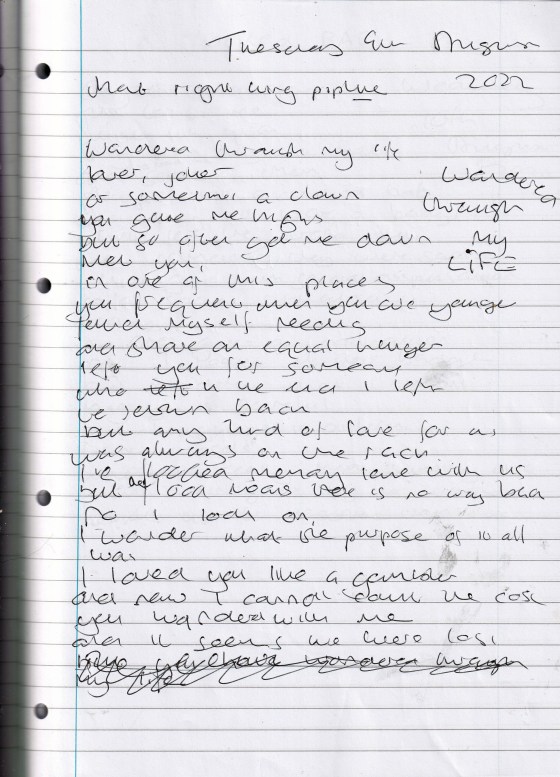 Tuesday 9th August
2022
right wing pipeline
Wandered through my life
lover, joker
or sometimes a clown
Wandered
through
my
LIFE
you gave me highs
but so often get me down
met you,
in one of this places
you frequent when you are younger
found myself needing
and share an equal hunger
left you for someone
who in the end I left
be return back
but any kind of love for us
was always on the rack
I've looked love with us
but there is no way back
So I look on,
I wander what the purpose of it all
was
I loved you like a gambler
and now I cannot count the cost
you wandered with me
and it seems we were lost
you have wandered through
my life